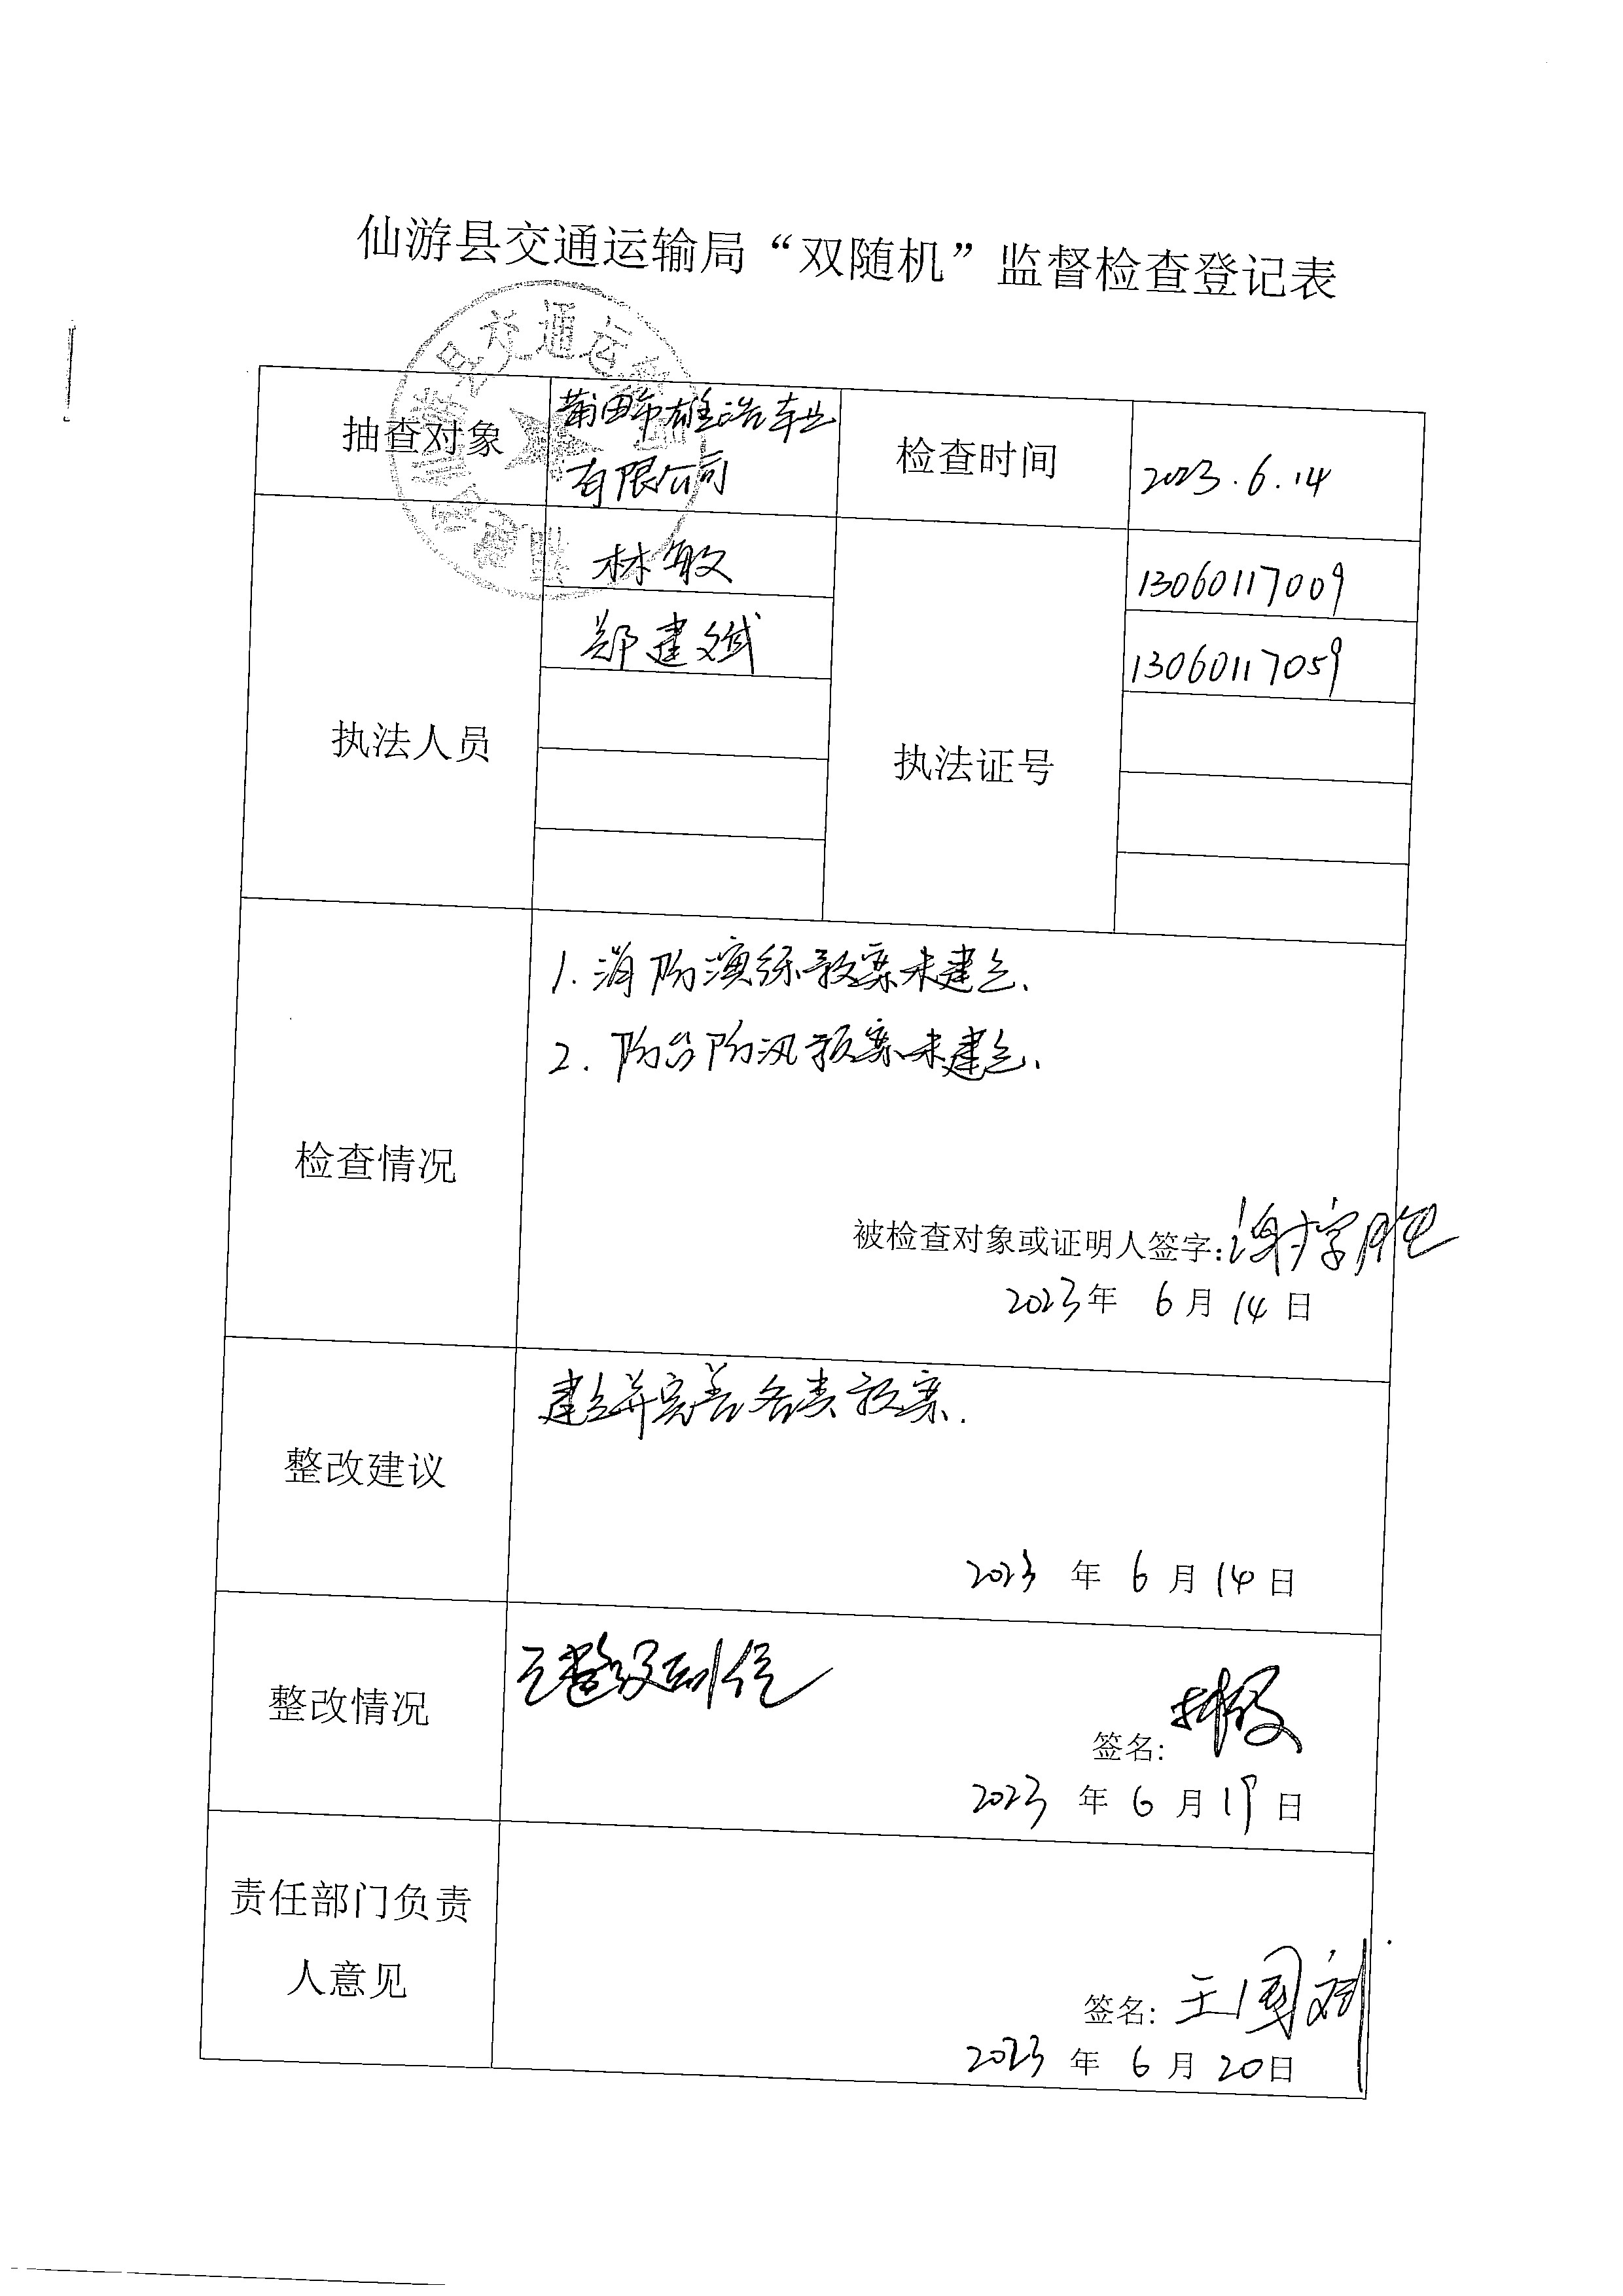 仙游县交通运输局“双随机”监督检查登记表
抽查对象
莆田市雄浩车业
有限公司
检查时间
2023.6.14
执法人员
林敏
郑建斌
执法证号
13060117009
13060117059
检查情况
1.消防演练预案未建立.
2.防台防汛预案未建立.
被检查对象或证明人签字:谢字
2023年 6月14日
整改建议
建立并完善各类预案.
2023 年 6 月 14 日
整改情况
已整改到位
签名:林敏
2023 年 6 月 19 日
责任部门负责
人意见
签名:王国
2023 年 6 月 20日